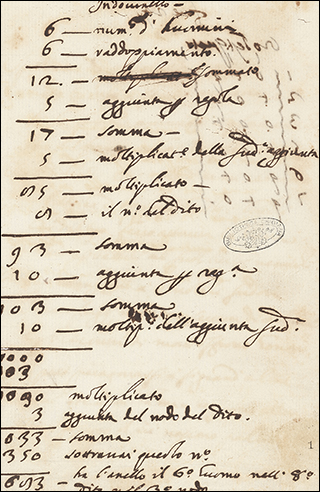 Indovinello —
6 — num.º d' huomini
6 — raddoppiamento.
12. — sommato
5 — aggiunta p regola
17 — somma —
5 — moltiplicat.e della sud.a aggiunta
85 — moltiplicato —
8 — il nº. del dito
93 — somma
10 — aggiunta p reg.a
103 — somma
10 — moltip.e dell'aggiunta sud.a
000
03
1030 moltiplicato
3 aggiunta del nodo del dito.
1033 — somma
350 nº.
683 — ha l'anello il 6º. huomo nell' 8º.
dito nel 3º nodo
1